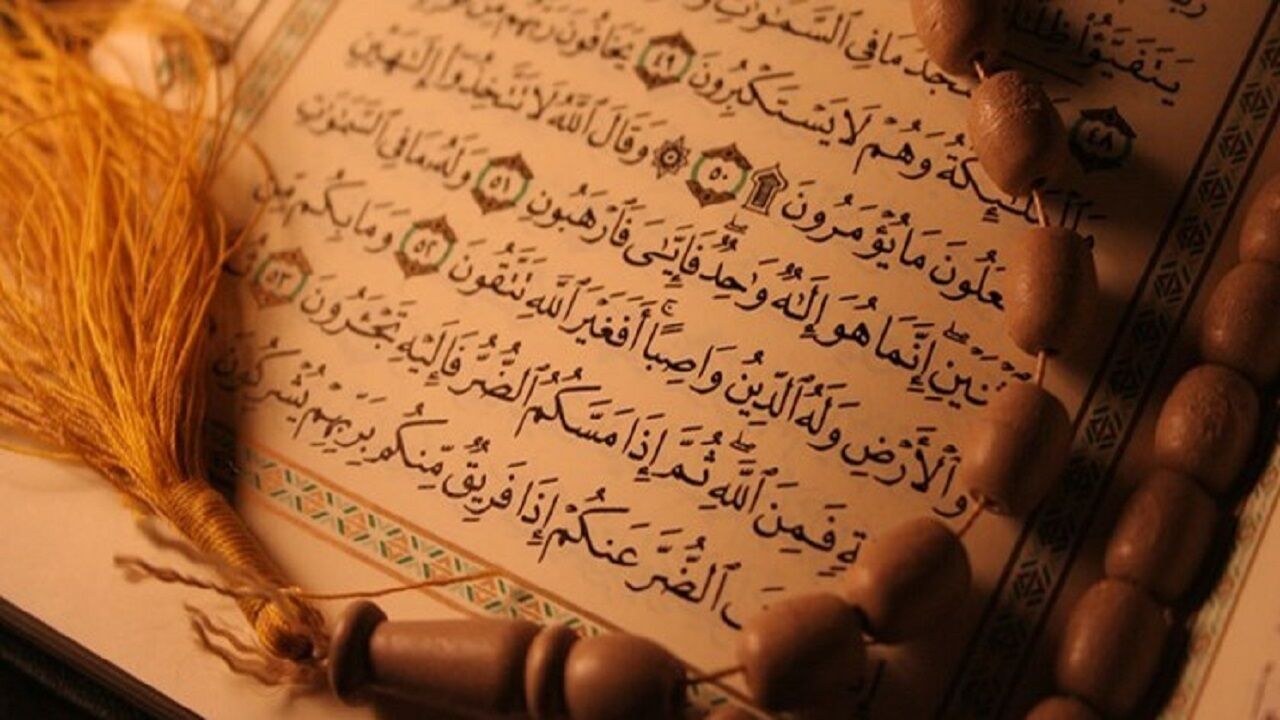 يَتَفَيَّؤُا۟ ظِلَٰلُهُۥ
٤٨ يَسْجُدُ مَا فِى ٱلسَّمَٰوَٰتِ
وَٱلْمَلَٰٓئِكَةُ وَهُمْ لَا يَسْتَكْبِرُونَ ٤٩ يَخَافُونَ رَبَّهُم مِّن
يَفْعَلُونَ مَا يُؤْمَرُونَ ۩ ٥٠ ۞ وَقَالَ ٱللَّهُ لَا تَتَّخِذُوٓا۟ إِلَٰهَيْنِ
ٱثْنَيْنِ ۖ إِنَّمَا هُوَ إِلَٰهٌ وَٰحِدٌ ۖ فَإِيَّٰىَ فَٱرْهَبُونِ ٥١ وَلَهُۥ مَا فِى ٱلسَّمَٰوَٰتِ
وَٱلْأَرْضِ وَلَهُ ٱلدِّينُ وَاصِبًا ۚ أَفَغَيْرَ ٱللَّهِ تَتَّقُونَ ٥٢ وَمَا بِكُم مِّن
ةٍ فَمِنَ ٱللَّهِ ۖ ثُمَّ إِذَا مَسَّكُمُ ٱلضُّرُّ فَإِلَيْهِ تَجْـَٔرُونَ ٥٣ ثُمَّ
فَ ٱلضُّرَّ عَنكُمْ إِذَا فَرِيقٌ مِّنكُم بِرَبِّهِمْ يُشْرِكُونَ